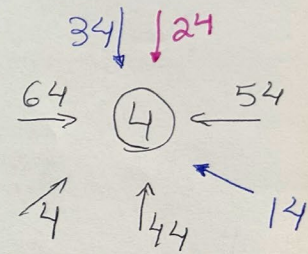 34 24
64 4 54
4 44 14